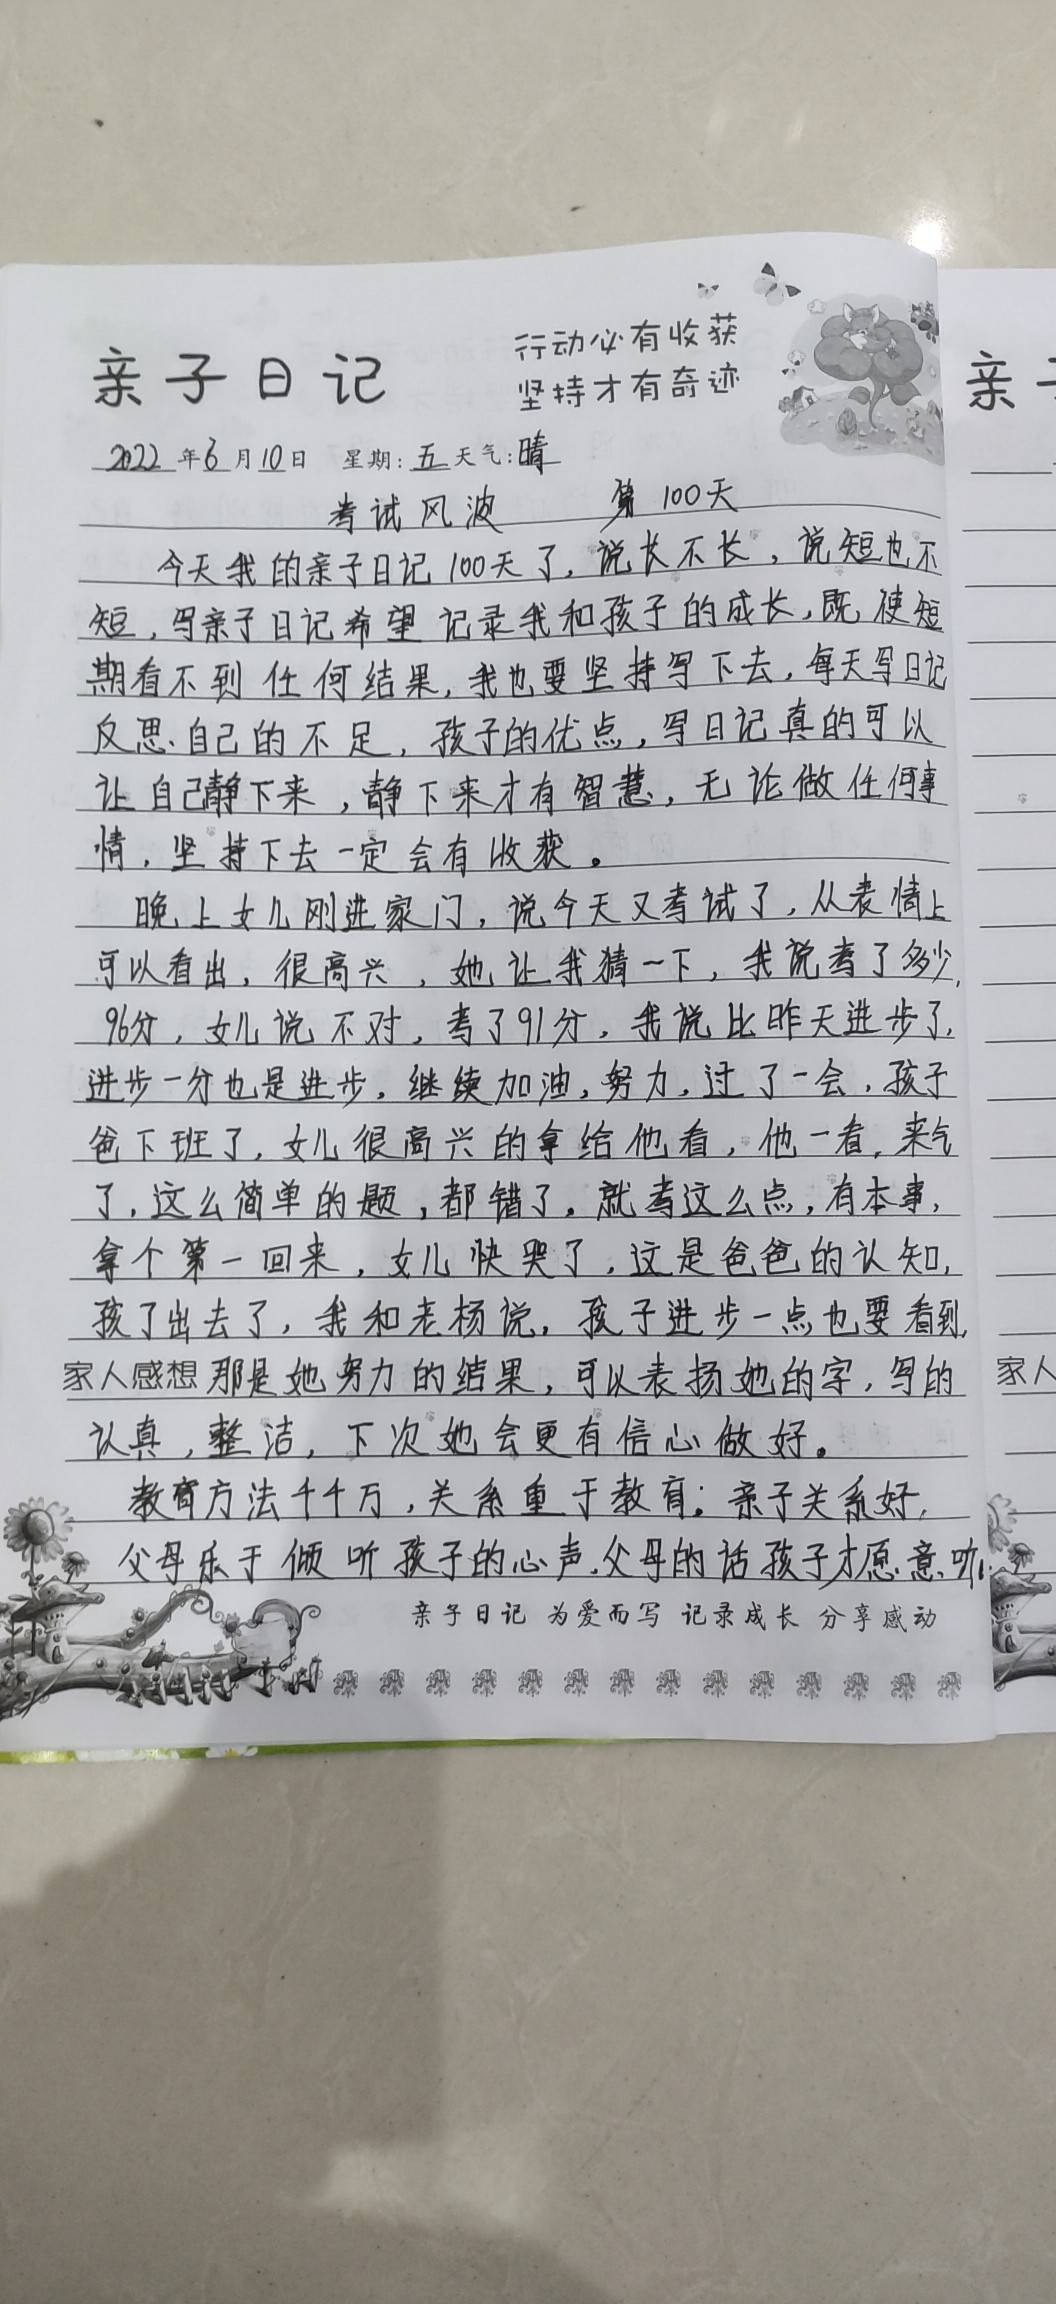 亲子日记
行动必有收获
坚持才有奇迹
2022年6月10日 星期:五天气:晴
考试风波 第100天
今天我的亲子日记100天了,说长不长,说短也不
短,写亲子日记希望记录我和孩子的成长,既使短
期看不到任何结果,我也要坚持写下去,每天写日记
反思自己的不足,孩子的优点,写日记真的可以
让自己静下来,静下来才有智慧,无论做任何事
情,坚持下去一定会有收获。
晚上女儿刚进家门,说今天又考试了,从表情上
可以看出,很高兴,她让我猜一下,我说考了多少,
96分,女儿说不对,考了91分,我说比昨天进步了,
进步一分也是进步,继续加油,努力,过了一会,孩子
爸下班了,女儿很高兴的拿给他看,他一看,来气
了,这么简单的题,都错了,就考这么点,有本事,
拿个第一回来,女儿快哭了,这是爸爸的认知,
孩了出去了,我和老杨说,孩子进步一点也要看到,
家人感想 那是她努力的结果,可以表扬她的字,写的
认真,整洁,下次她会更有信心做好。
教育方法千千万,关系重于教育;亲子关系好,
父母乐于倾听孩子的心声,父母的话孩子才愿意听。
亲子日记 为爱而写 记录成长 分享感动
亲子
家人